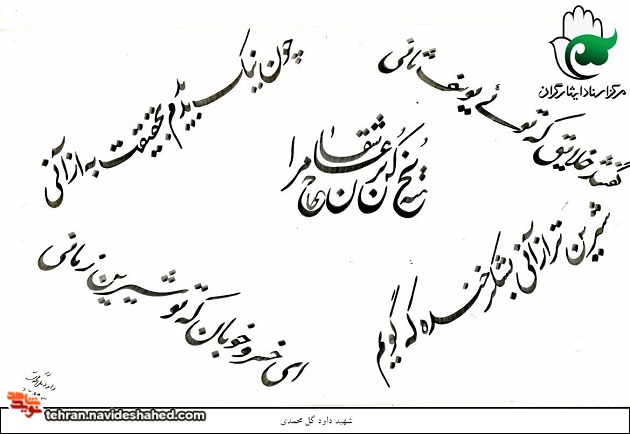 مرکز اسناد ایثارگران
گفتند خلایق که توئی یوسف ثانی
چون نیک بدیدم بحقیقت به از آنی
مرا
شیرین تر از آنی بشکر خنده که گویم
ای خسرو خوبان که تو شیرین زمانی
tehran.navideshahed.com
شهید داود گل محمدی